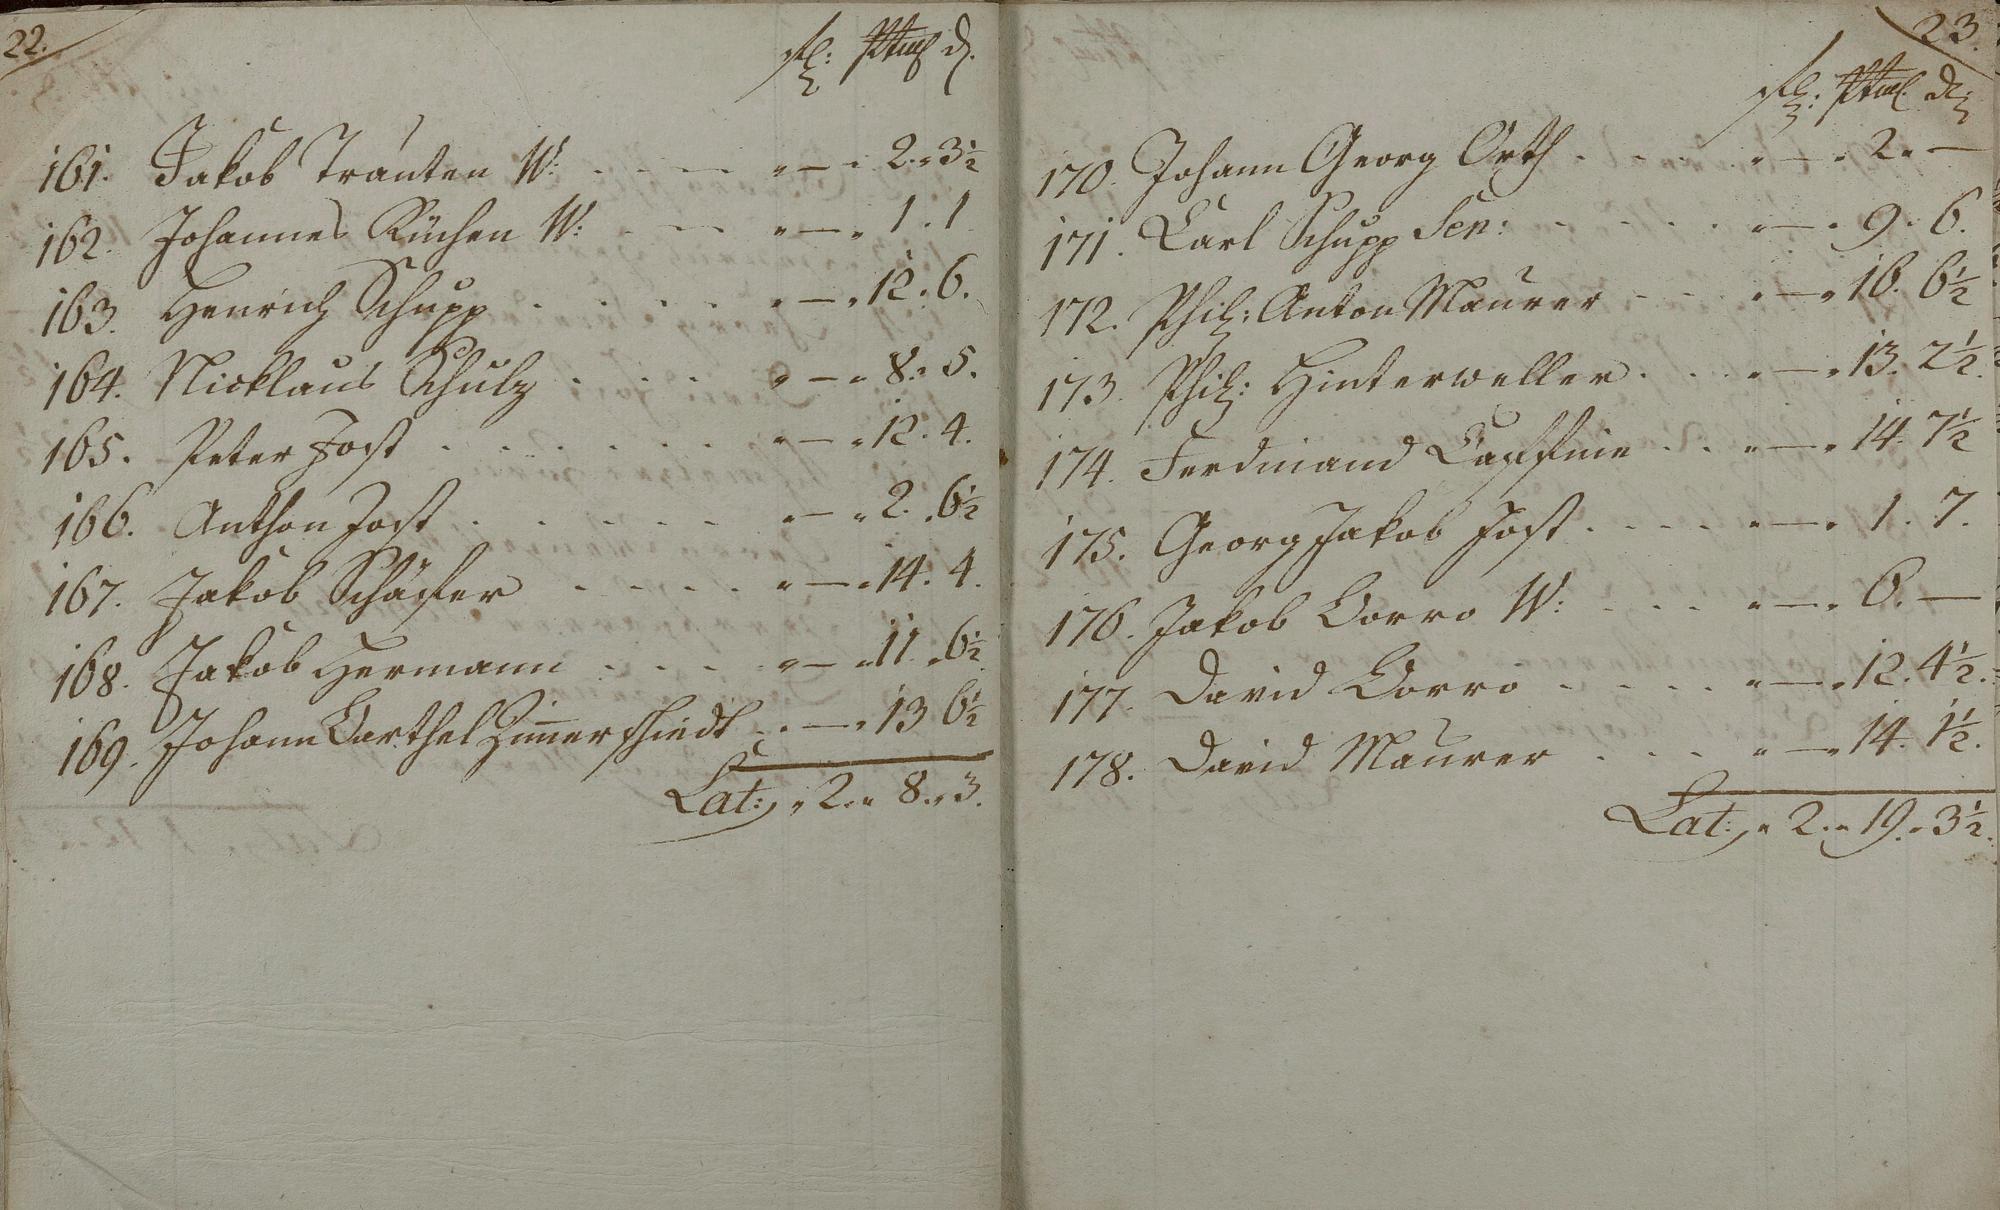 22.
fl: d.
161. Jakob Trauten W: — 2. 3½
162. Johannes Küchen W: — 1. 1
163. Henrich Schupp — 12. 6.
164. Nicklaus Schulz — 8. 5.
165. Peter Jost — 12. 4.
166. Anthon Jost — 2. 6½
167. Jakob Schäffer — 14. 4.
168. Jakob Hermann — 11. 6½
169. Johann Barthel Zimerschiedt — 13 6½
Lat: 2. 8. 3.
23.
fl: d:
170. Johann Georg Orth — 2. —
171. Carl Schupp Sen: — 9. 6.
172. Phil: Anton Maurer — 16. 6½
173. Phil: Hinterweller — 13. 2½.
174. Ferdinand — 14. 7½
175. Georg Jakob Jost — 1. 7.
176. Jakob Dorro W: — 6. —
177. David Dorro — 12. 4½.
178. David Maurer — 14. 1½.
Lat: 2. 19. 3½.